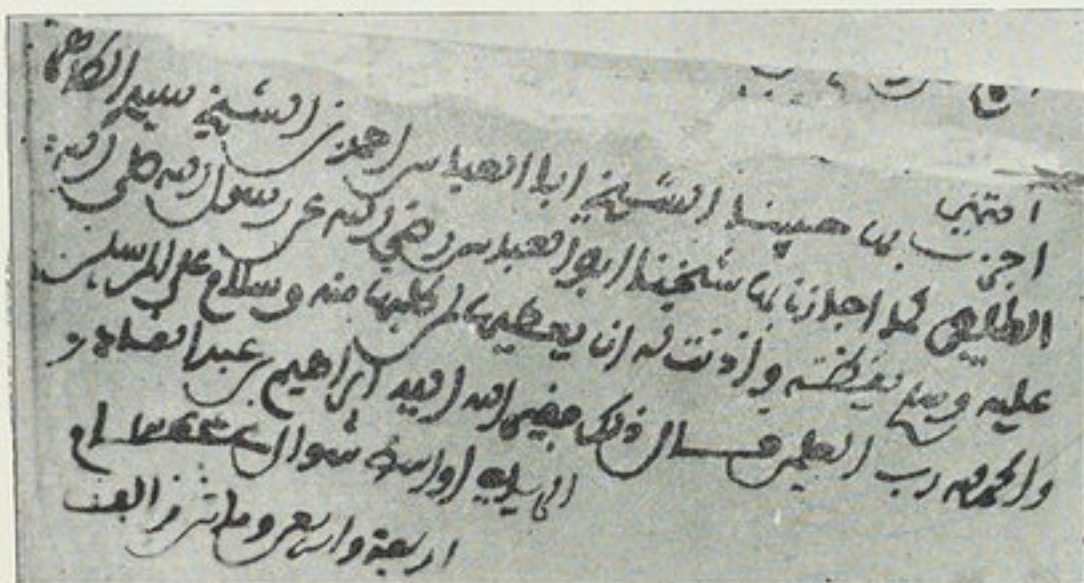 انتهى
اجزت بها حبيبنا الشيخ ابا العباس احمد بن الشيخ سيدي
كما اجازنا بها شيخنا ابو العباس رضي الله عن رسول الله صلى الله
عليه وسلم يقظة واذنت له ان يعطيها لمن طلبها منه وسلام على المرسلين
والحمد لله رب العلمين قال ذلك فقير الله اليه ابراهيم بن عبد القادر
الرياحي اواسط شوال عام
اربعة واربعين وماتين والف